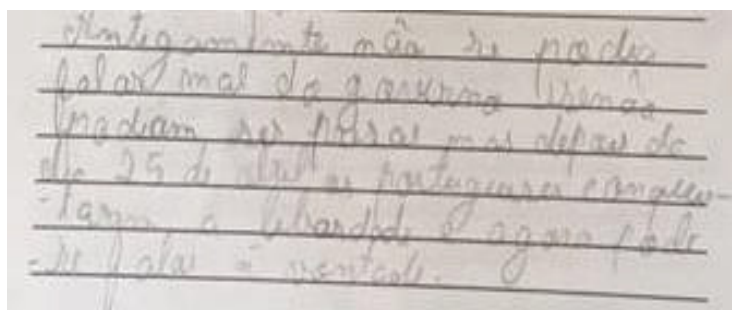 Antigamente não se podia
falar mal do governo senão
podiam ser presos mas depois do
dia 25 de abril os portugueses conquis-
-taram a liberdade e agora pode
-se falar à vontade.